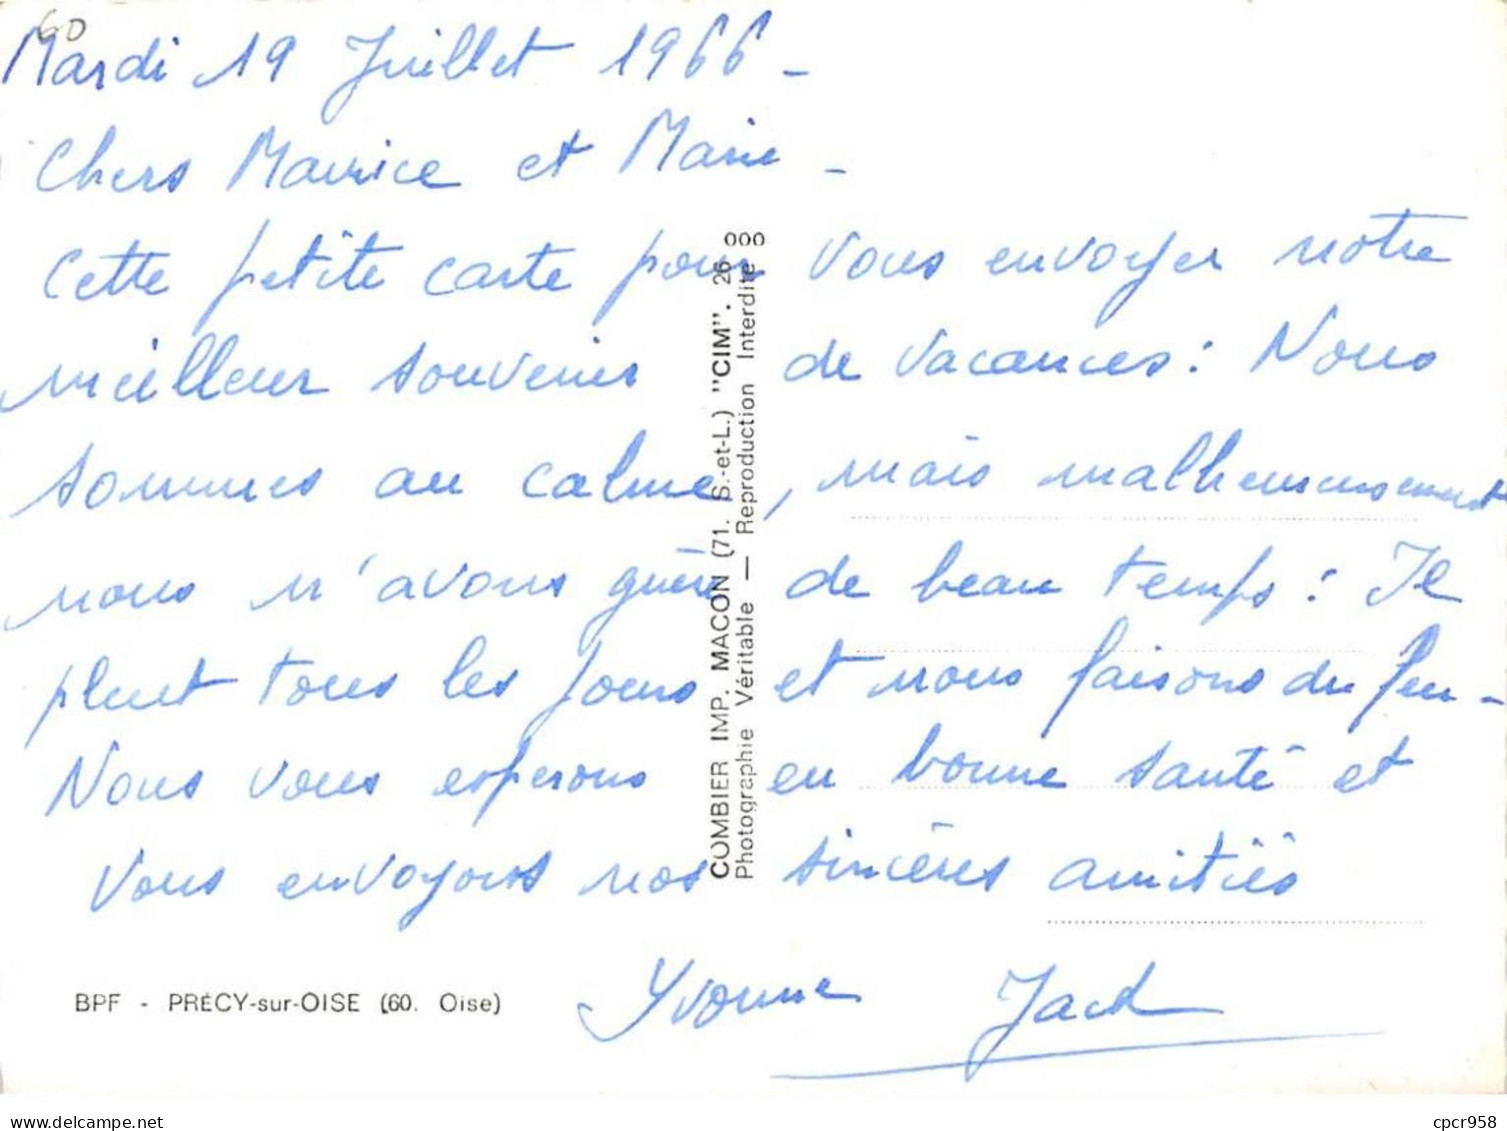 60
Mardi 19 Juillet 1966 -
Chers Maurice et Marie -
Cette petite carte pour vous envoyer notre
meilleur souvenir de vacances : Nous
sommes au calme, mais malheureusement
nous n'avons guère de beau temps : Il
pleut tous les jours et nous faisons du feu -
Nous vous esperons en bonne santé et
vous envoyons nos sincères amitiés
Yvonne Jack
COMBIER IMP. MACON (71. S.-et-L.) "CIM". 26 000
Photographie Véritable — Reproduction Interdite
BPF - PRÉCY-sur-OISE (60. Oise)
delcampe.net
cpcr958